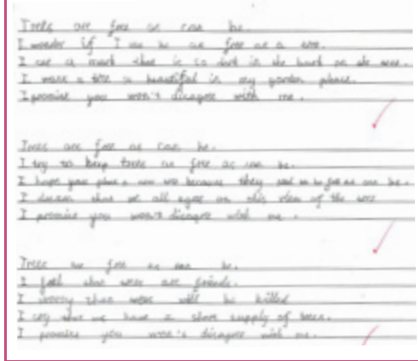 Trees are free as can be.
I wonder if I can be as free as a tree.
I see a mark that is so dark in the bark on the tree.
I want a tree a beautiful in my garden please.
I promise you won't disagree with me.
Trees are free as can be.
I try to keep trees as free as can be.
I hope you plant a new tree because they need to be free as can be.
I dream that we all agree on this view of the tree
I promise you won't disagree with me.
Trees are free as can be.
I feel that trees are friends.
I worry that trees will be killed
I cry that we have a short supply of trees.
I promise you won't disagree with me.